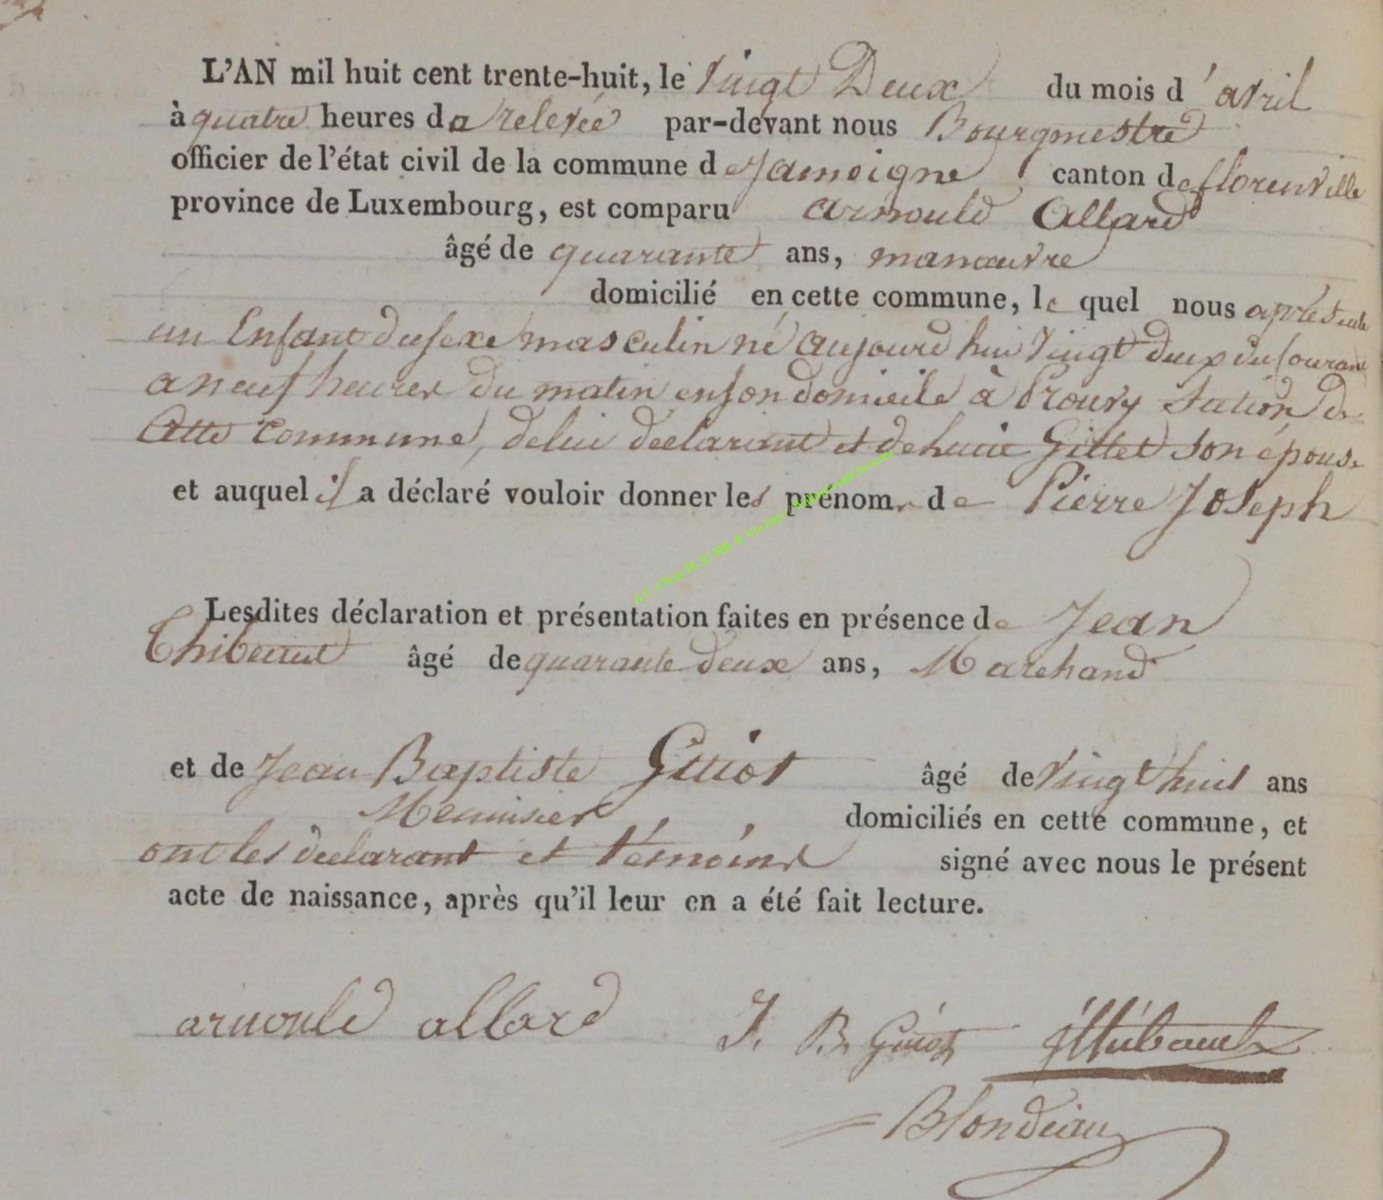 L'AN mil huit cent trente-huit, le vingt Deux du mois d'avril
à quatre heures de relevée par-devant nous Bourgmestre
officier de l'état civil de la commune de Jamoigne canton de florenville
province de Luxembourg, est comparu arnould Allard
âgé de quarante ans, manœuvre
domicilié en cette commune, lequel nous a présenté
un Enfant du sexe masculin né aujourd'hui vingt deux du Courant
a neuf heures du matin en son domicile à Prouvy Section de
Cette commune, de lui déclarant et de Lucie Gillet son épouse
et auquel il a déclaré vouloir donner les prénoms de Pierre Joseph
Lesdites déclaration et présentation faites en présence de Jean
Thibeaut âgé de quarante deux ans, Marchand
et de Jean Baptiste Guiot âgé de vingt huit ans
Menuisier domiciliés en cette commune, et
ont les déclarant et témoins signé avec nous le présent
acte de naissance, après qu'il leur en a été fait lecture.
arnould allard J. B. Guiot JThibeault
Blondeau